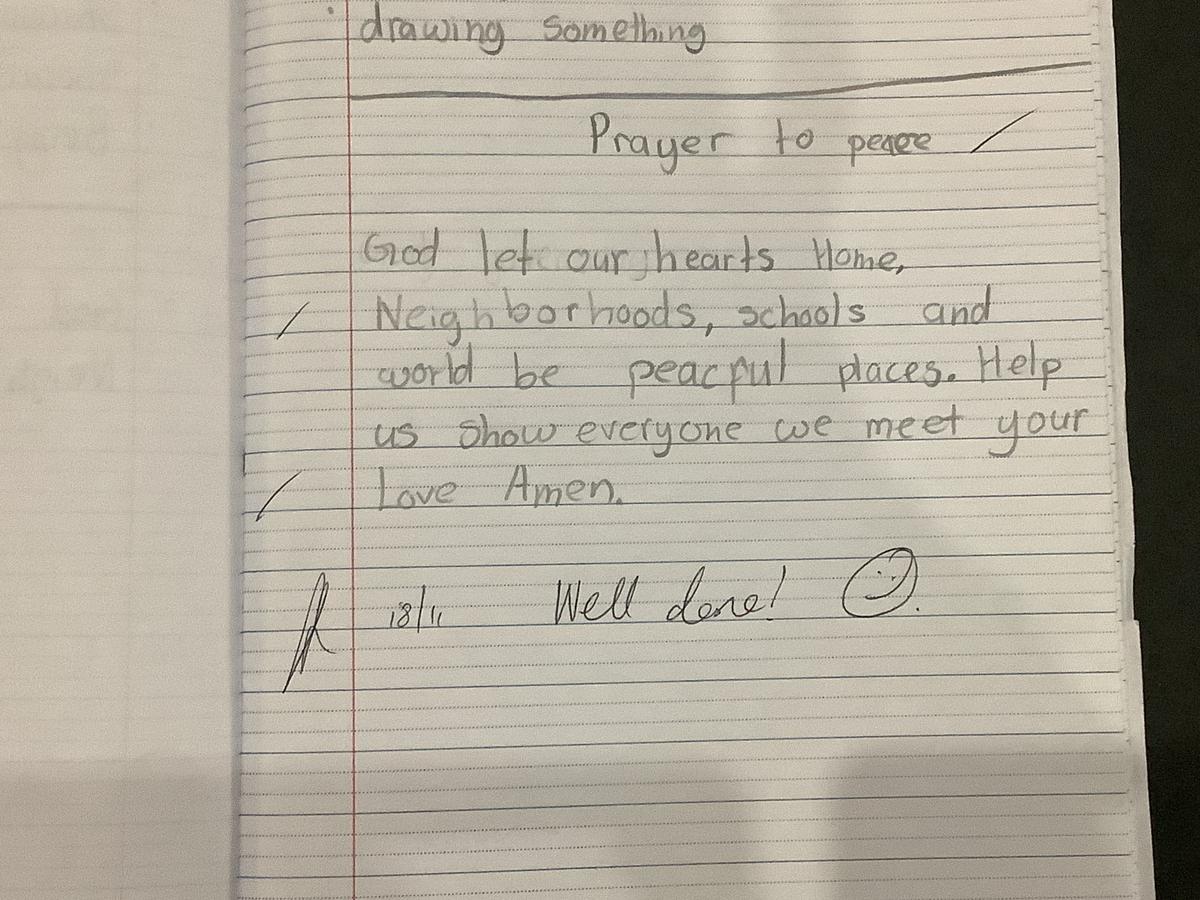 drawing something
Prayer to peace
God let our hearts Home,
Neighborhoods, schools and
world be peacful places. Help
us show everyone we meet your
Love Amen.
18/11 Well done!